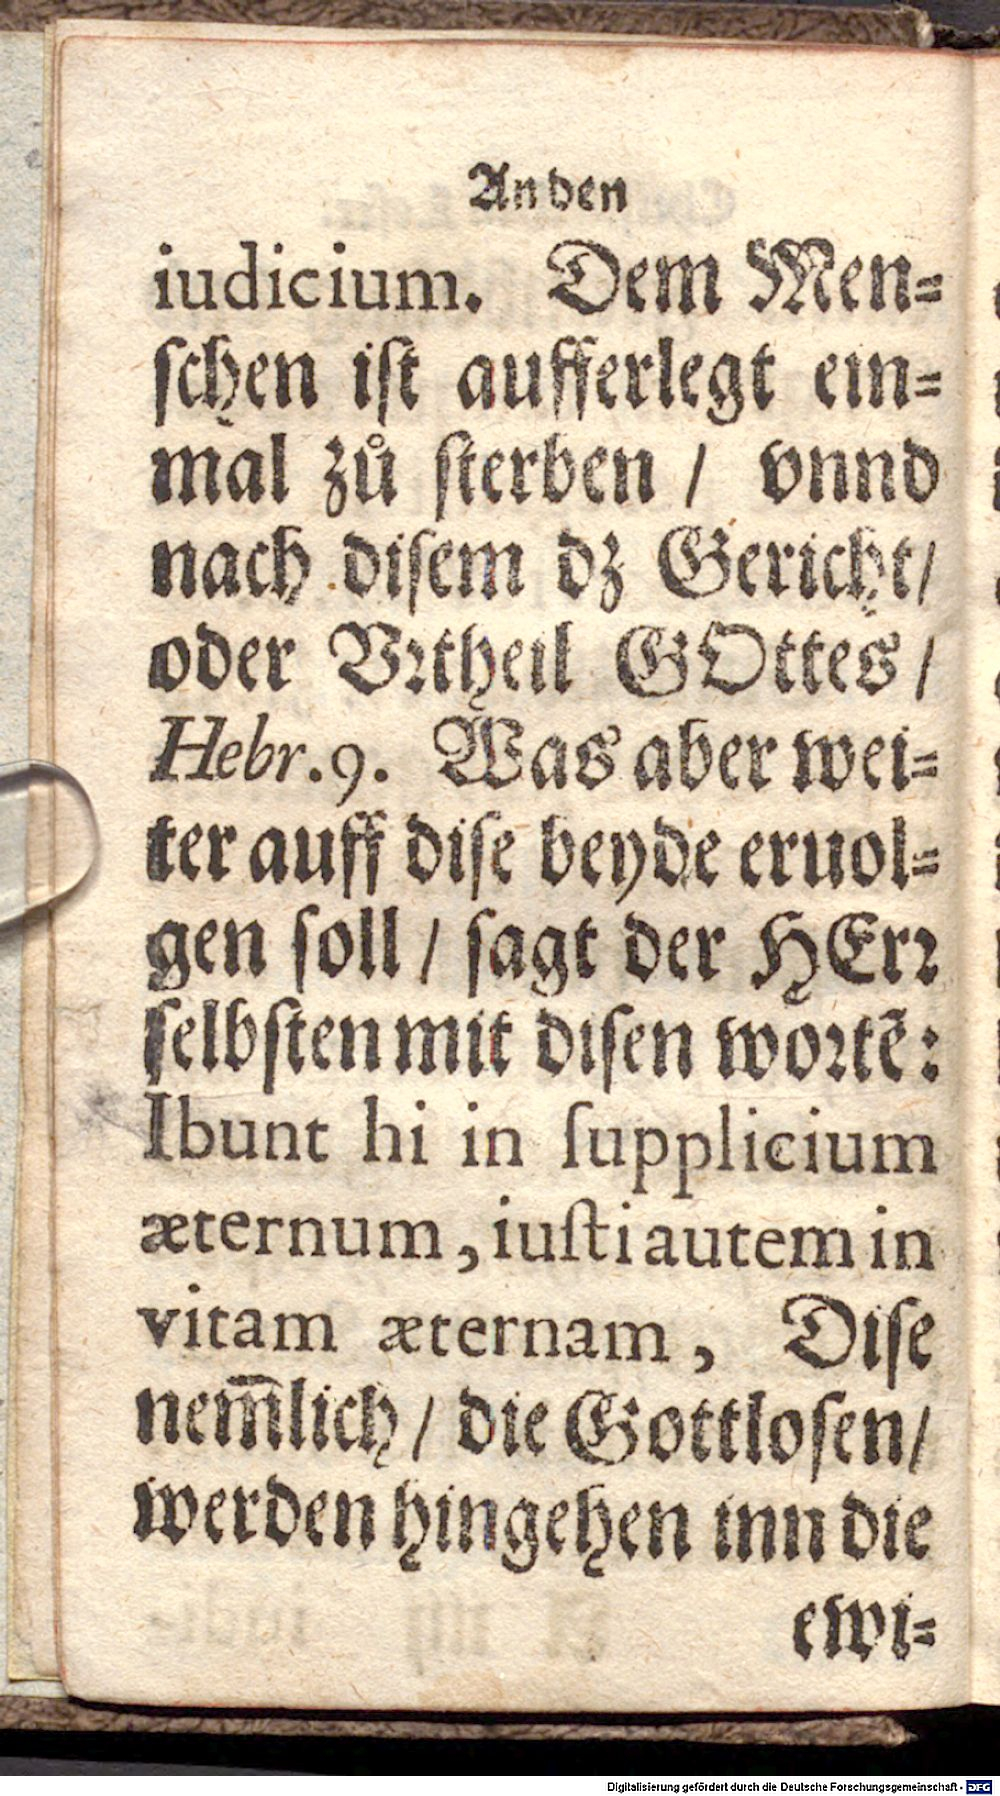 An den
iudicium. Dem Men=
schen ist aufferlegt ein=
mal zů sterben / vnnd
nach disem dz Gericht/
oder Vrtheil GOttes /
Hebr. 9. Was aber wei=
ter auff dise beyde eruol=
gen soll / sagt der HErr
selbsten mit disen wortẽ:
Ibunt hi in ſupplicium
æternum, iuſti autem in
vitam æternam, Dise
nem̃lich / die Gottlosen/
werden hingehen inn die
ewi=
Digitalisierung gefördert durch die Deutsche Forschungsgemeinschaft - DFG